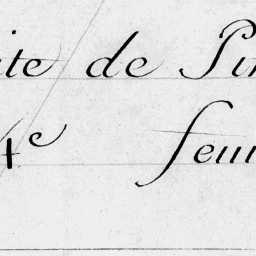 ite de Pi
4e feui